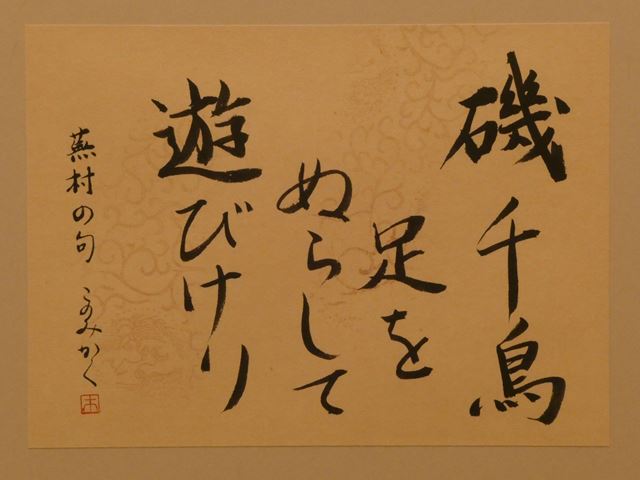 磯千鳥
足を
ぬらして
遊びけり
蕪村の句 このみかく